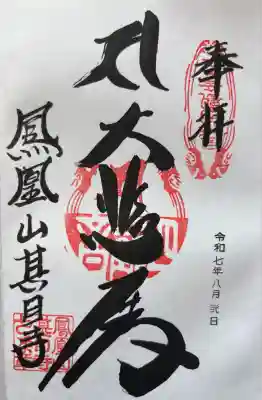 奉拝
令和七年八月弐日
大悲殿
鳳凰山甚目寺